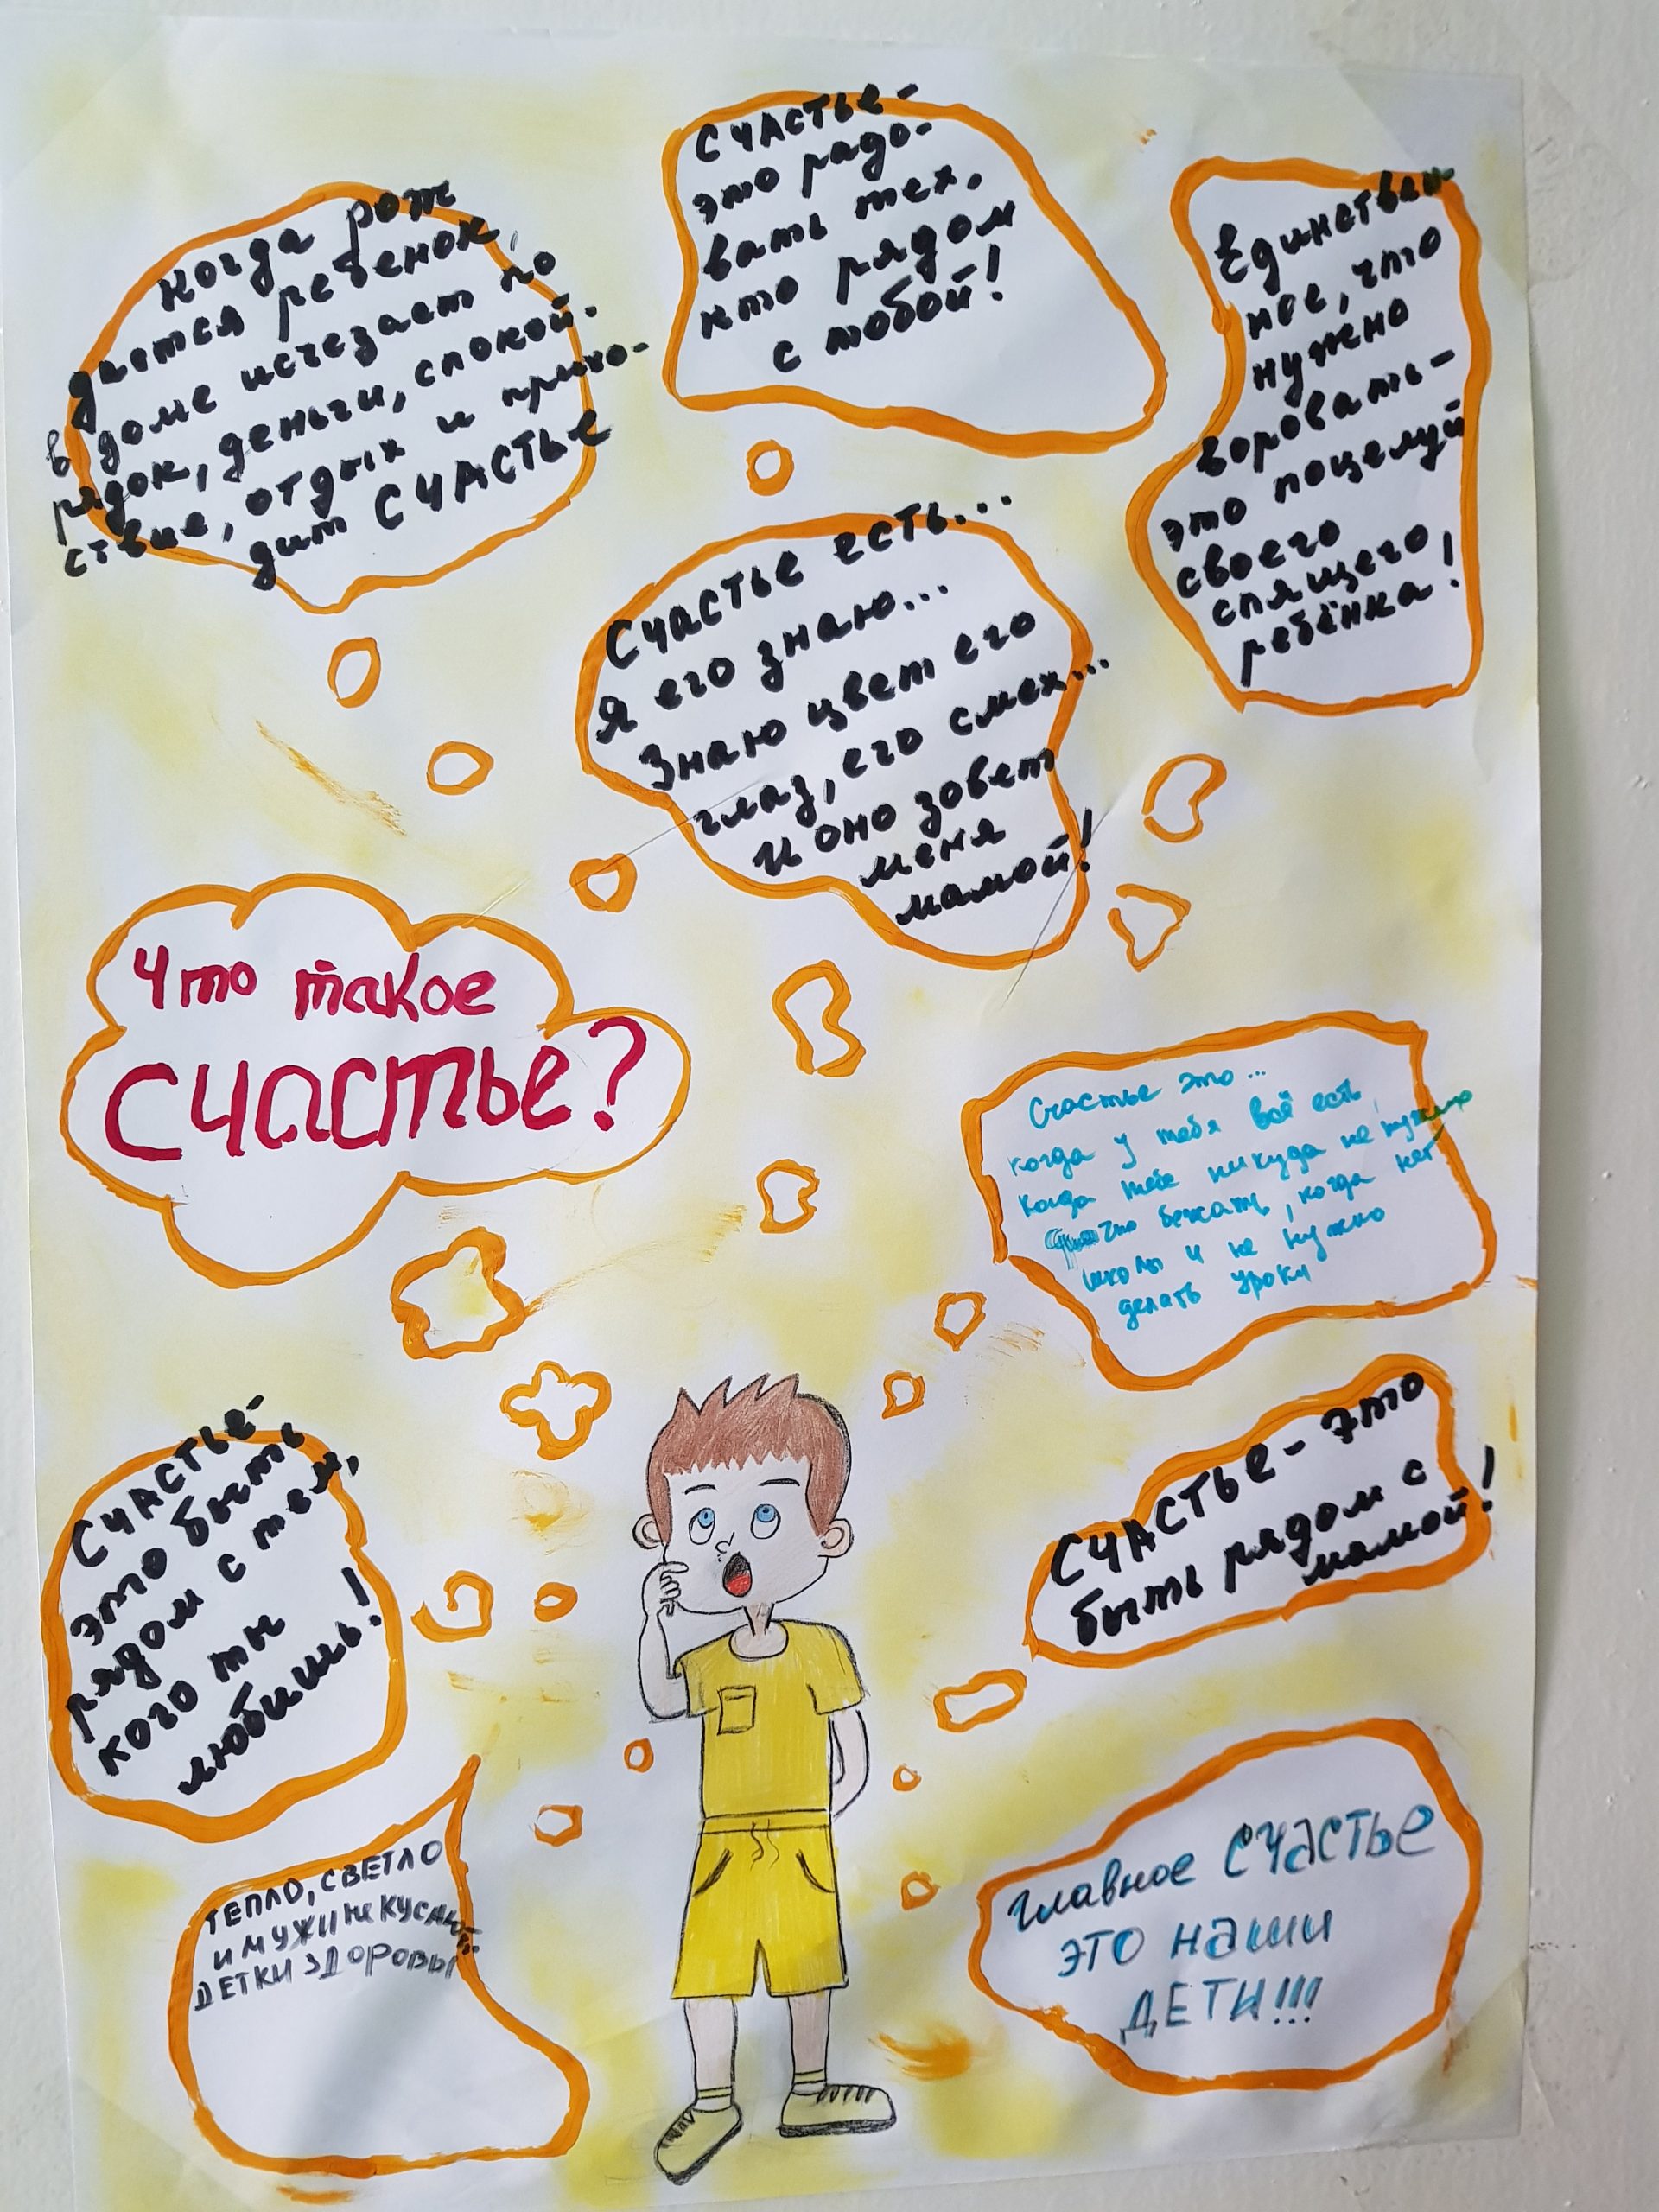 Когда рож
дается ребенок,
в доме исчезает по
рядок, деньги, спокой-
ствие, отдых и прихо-
дит СЧАСТЬЕ
СЧАСТЬЕ-
это радо-
вать тех,
кто рядом
с тобой!
Единствен
ное, что
нужно
воровать-
это поцелуй
своего
спящего
ребёнка!
Счастье есть...
Я его знаю...
Знаю цвет его
глаз, его смех...
И оно зовет
меня
мамой!
Что такое
Счастье?
Счастье это...
когда у тебя всё есть,
когда тебе никуда не нужно
бежать, когда нет
школы и не нужно
делать уроки
СЧАСТЬЕ-
это быть
рядом с тем,
кого ты
любишь!
СЧАСТЬЕ - это
быть рядом с
мамой!
ТЕПЛО, СВЕТЛО
И МУЖИ НЕ КУСАЮТ
ДЕТКИ ЗДОРОВЫ
главное СЧАСТЬЕ
ЭТО наши
ДЕТИ!!!